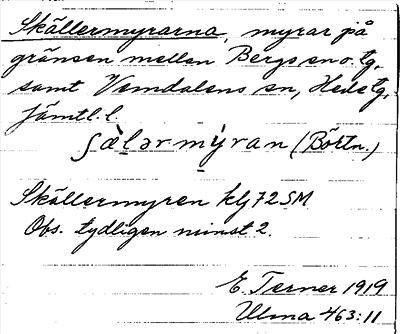 Skällermyrarna, myrar på
gränsen mellan Bergs sn o. tg.
samt Vemdalens sn, Hede tg,
Jämtl. l.
ʃä̀lərmýran (Börtn.)
Skällermyren klj 72 SM.
Obs. tydligen minst 2.
E. Terner 1919
Ulma 463:11